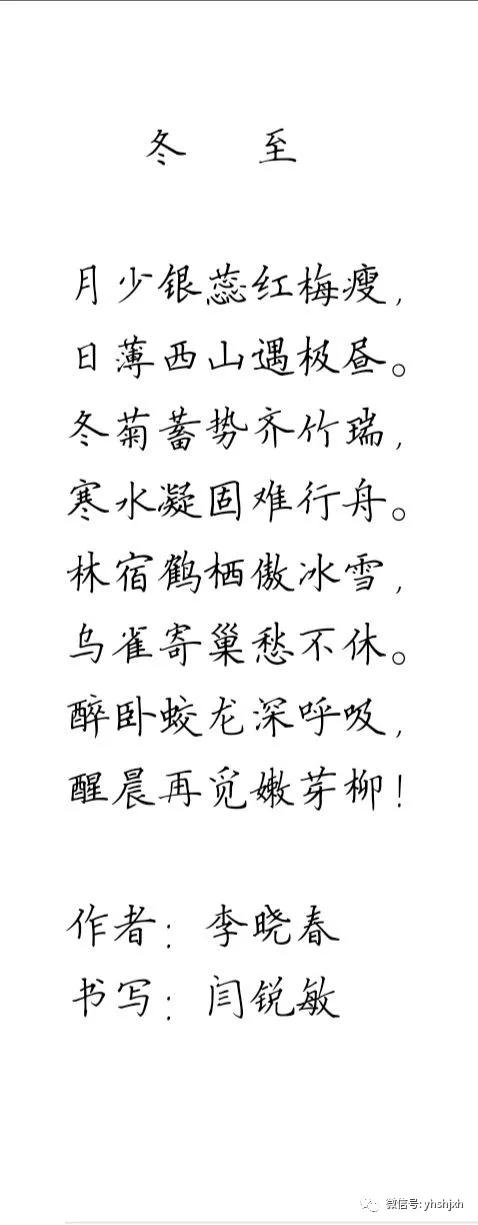 冬 至
月少银蕊红梅瘦，
日薄西山遇极昼。
冬菊蓄势齐竹瑞，
寒水凝固难行舟。
林宿鹤栖傲冰雪，
乌雀寄巢愁不休。
醉卧蛟龙深呼吸，
醒晨再觅嫩芽柳！
作者：李晓春
书写：闫锐敏
微信号: yhshjxh